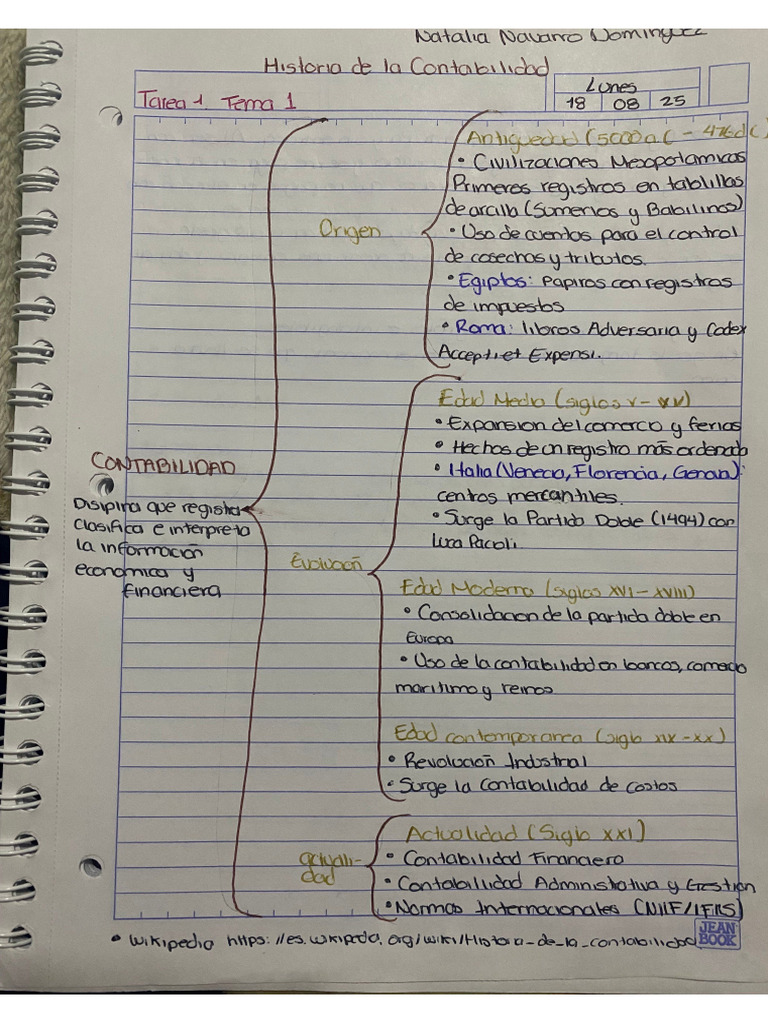 Natalia Navarro Dominguez
Historia de la Contabilidad
Lunes
18 08 25
Tarea 1 Tema 1
CONTABILIDAD
Disiplina que registra
Clasifica e interpreta
la información
económica y
financiera
Origen
Antiguedad (5000 a.C - 476 d.C)
• Civilizaciones Mesopotamicas
Primeros registros en tablillas
de arcilla (Sumerios y Babilinos)
• Uso de cuentas para el control
de cosechas y tributos.
• Egiptos: Papiros con registros
de impuestos
• Roma: libros Adversaria y Codex
Accepti et Expensi.
Evolución
Edad Media (siglos V - XV)
• Expansion del comercio y ferias
• Hechos de un registro más ordenado
• Italia (Venecia, Florencia, Genova):
centros mercantiles.
• Surge la Partida Doble (1494) con
Luca Pacoli.
Edad Moderna (siglos XVI - XVIII)
• Consolidacion de la partida doble en
Europa
• Uso de la contabilidad en bancos, comercio
maritimo y reinos
Edad contemporanea (siglo XIX - XX)
• Revolución Industrial
• Surge la Contabilidad de costos
actuali-
dad
Actualidad (Siglo XXI)
• Contabilidad Financiera
• Contabilidad Administrativa y Gestión
• Normas Internacionales (NIIF/IFRS)
• Wikipedia https://es.wikipeda.org/wiki/Historia_de_la_contabilidad
JEAN
BOOK